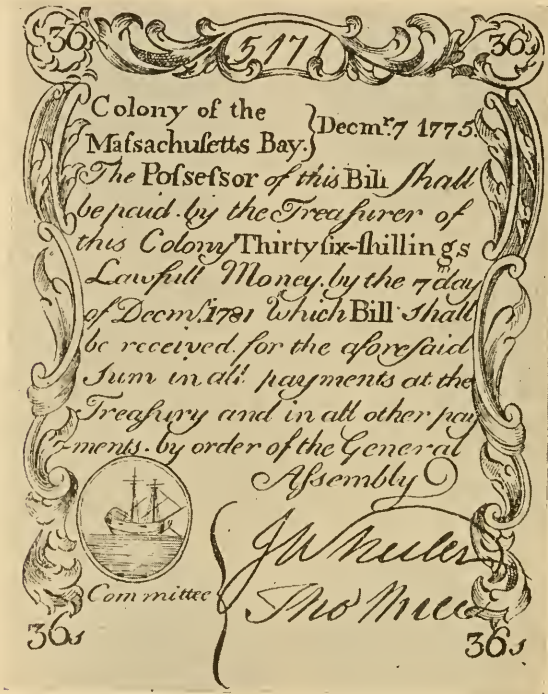 36s 5171 36s
Colony of the
Maſsachuſetts Bay. } Decmr. 7 1775.
The Poſseſsor of this Bill ſhall
be paid by the Treaſurer of
this Colony Thirty ſix-ſhillings
Lawfull Money by the 7 day
of Decmr. 1781 Which Bill ſhall
be received for the aforeſaid
Sum in all payments at the
Treaſury and in all other pay
ments by order of the General
Aſsembly
Committee
36s 36s